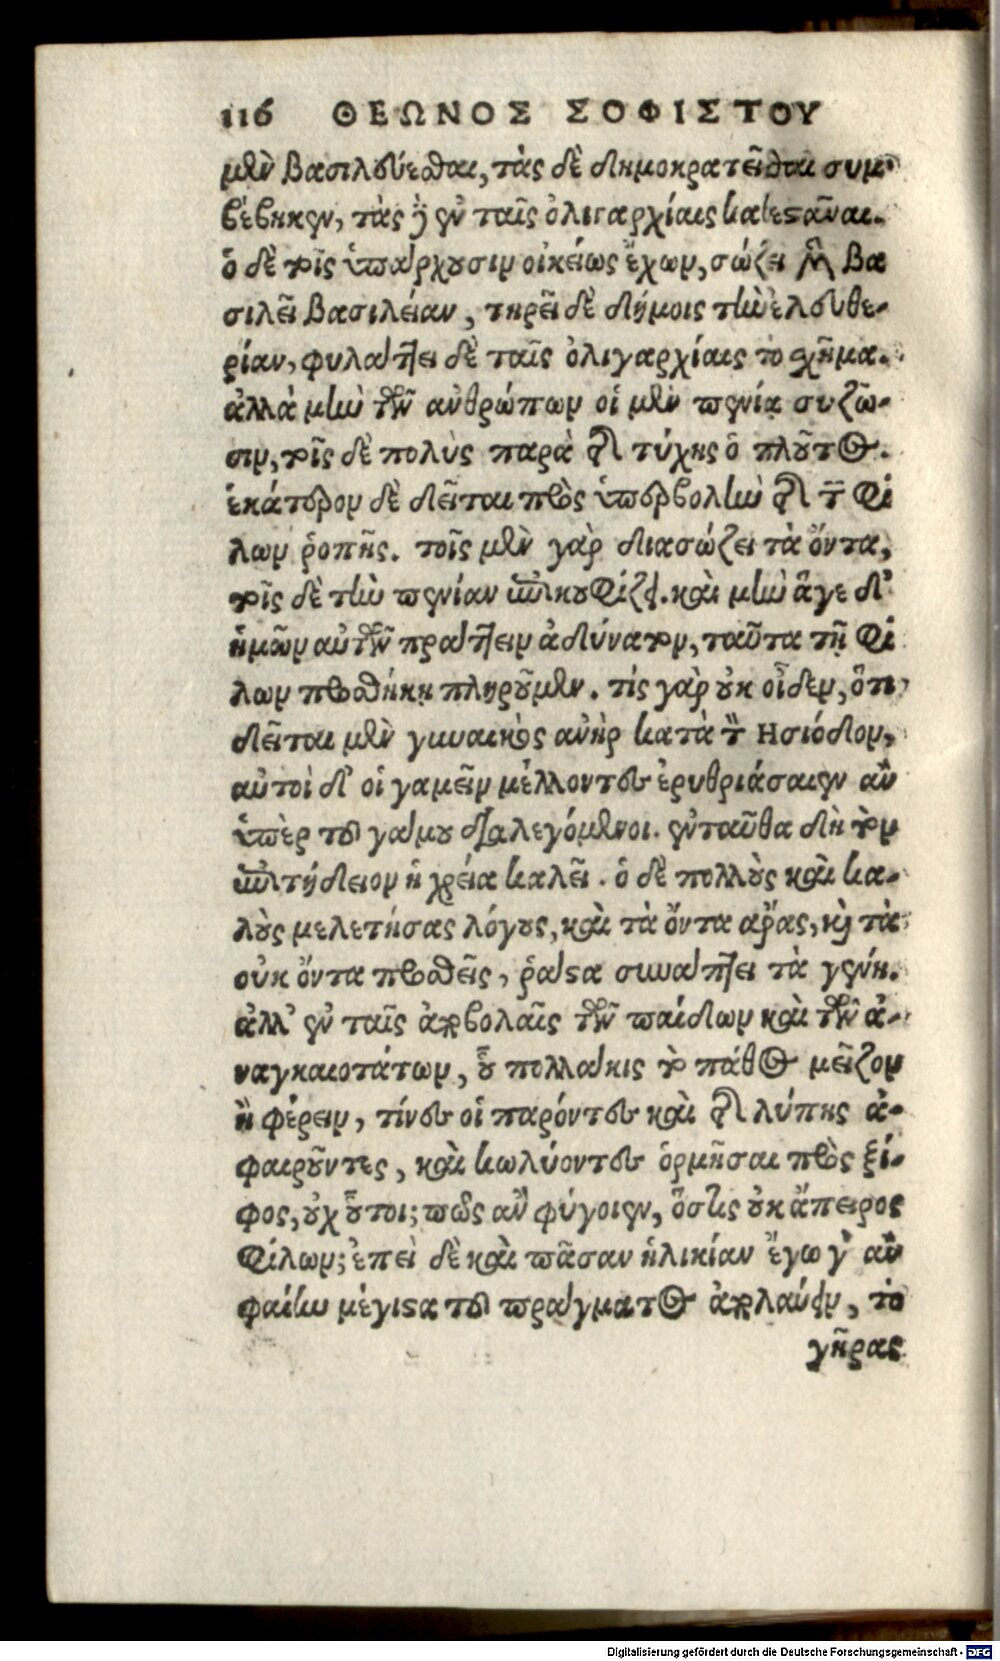 116 ΘΕΩΝΟΣ ΣΟΦΙΣΤΟΥ
μὲν βασιλεύεσθαι, τὰς δὲ δημοκρατεῖσθαι συμ-
βέβηκεν, τὰς δ' ἐν ταῖς ὀλιγαρχίαις καθεστάναι.
ὁ δὲ τοῖς ὑπάρχουσιν οἰκείως ἔχων, σώζει μὲν βα
σιλεῖ βασιλείαν, τηρεῖ δὲ δήμοις τὴν ἐλευθε-
ρίαν, φυλάττει δὲ ταῖς ὀλιγαρχίαις τὸ σχῆμα.
ἀλλὰ μὴν τῶν ἀνθρώπων οἱ μὲν πενίᾳ συζῶ-
σιν, τοῖς δὲ πολὺς παρὰ τῆς τύχης ὁ πλοῦτος.
ἑκάτερον δὲ δεῖται πρὸς ὑπερβολὴν τῆς τῶν φί
λων ῥοπῆς. τοῖς μὲν γὰρ διασώζει τὰ ὄντα,
τοῖς δὲ τὴν πενίαν ἐπικουφίζει. καὶ μὴν ἅγε δι'
ἡμῶν αὐτῶν πράττειν ἀδύνατον, ταῦτα τῇ φί
λων προσθήκῃ πληροῦμεν. τίς γὰρ οὐκ οἶδεν, ὅτι
δεῖται μὲν γυναικὸς ἀνὴρ κατὰ τὸν Ησίοδον,
αὐτοὶ δ' οἱ γαμεῖν μέλλοντες ἐρυθριάσαιεν ἂν
ὑπὲρ τοῦ γάμου διαλεγόμενοι. ἐνταῦθα δὴ τὸν
ἐπιτήδειον ἡ χρεία καλεῖ. ὁ δὲ πολλοὺς καὶ κα-
λοὺς μελετήσας λόγους, καὶ τὰ ὄντα ἄρας, καὶ τὰ
οὐκ ὄντα προσθεὶς, ῥᾷστα συνάπτει τὰ γένη.
ἀλλ' ἐν ταῖς ἀποβολαῖς τῶν παίδων καὶ τῶν ἀ-
ναγκαιοτάτων, οὗ πολλάκις τὸ πάθος μεῖζον
ἢ φέρειν, τίνες οἱ παρόντες καὶ τῆς λύπης ἀ-
φαιροῦντες, καὶ κωλύοντες ὁρμῆσαι πρὸς ξί-
φος, οὐχ οὗτοι; πῶς ἂν φύγοιεν, ὅστις οὐκ ἄπειρος
φίλων; ἐπεὶ δὲ καὶ πᾶσαν ἡλικίαν ἔγωγ' ἂν
φαίην μέγιστα τοῦ πράγματος ἀπολαύειν, τὸ
γῆρας
Digitalisierung gefördert durch die Deutsche Forschungsgemeinschaft - DFG